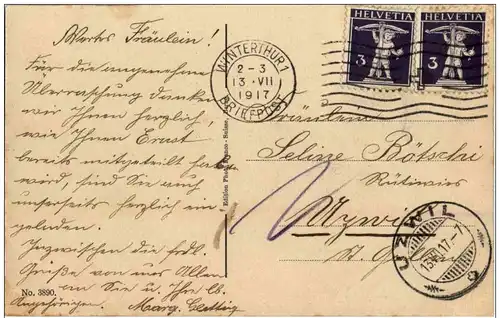 Wertes Fräulein!
Für die angenehme
Überraschung danken
wir Ihnen herzlich!
wie Ihnen Ernst
bereits mitgeteilt haben
wird, sind Sie auch
unserseits herzlich ein-
geladen.
Inzwischen die frdl.
Grüße von uns Allen
an Sie u. Ihre lb.
Angehörigen. Marg.
No. 3890.
Edition Photo Franco-Suisse
WINTERTHUR 1
2-3
13. VII
1917
BRIEFPOST
HELVETIA
3
HELVETIA
3
Fräulein
Seline Bötschi
Rütiwies
Uzwil
St. G
UZWIL